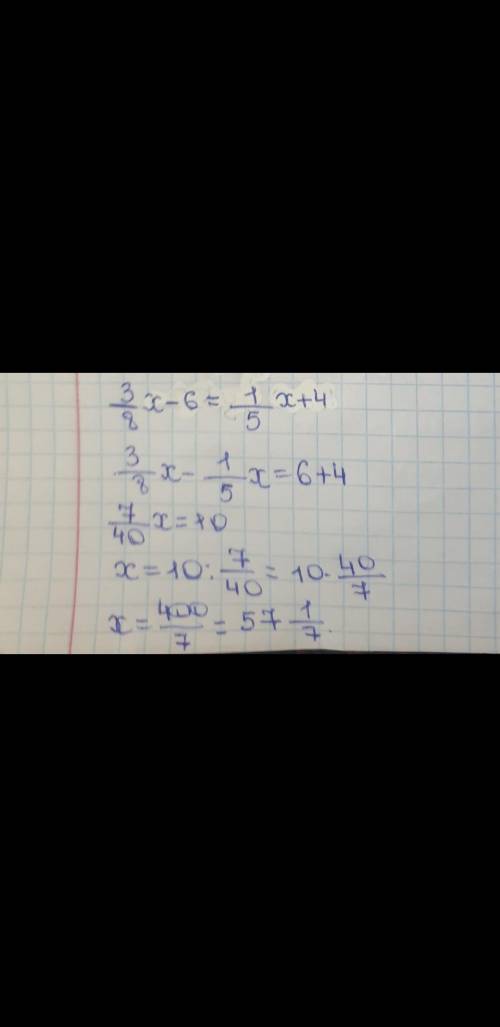 3/8 x - 6 = 1/5 x + 4
3/8 x - 1/5 x = 6 + 4
7/40 x = 10
x = 10 : 7/40 = 10 · 40/7
x = 400/7 = 57 1/7.